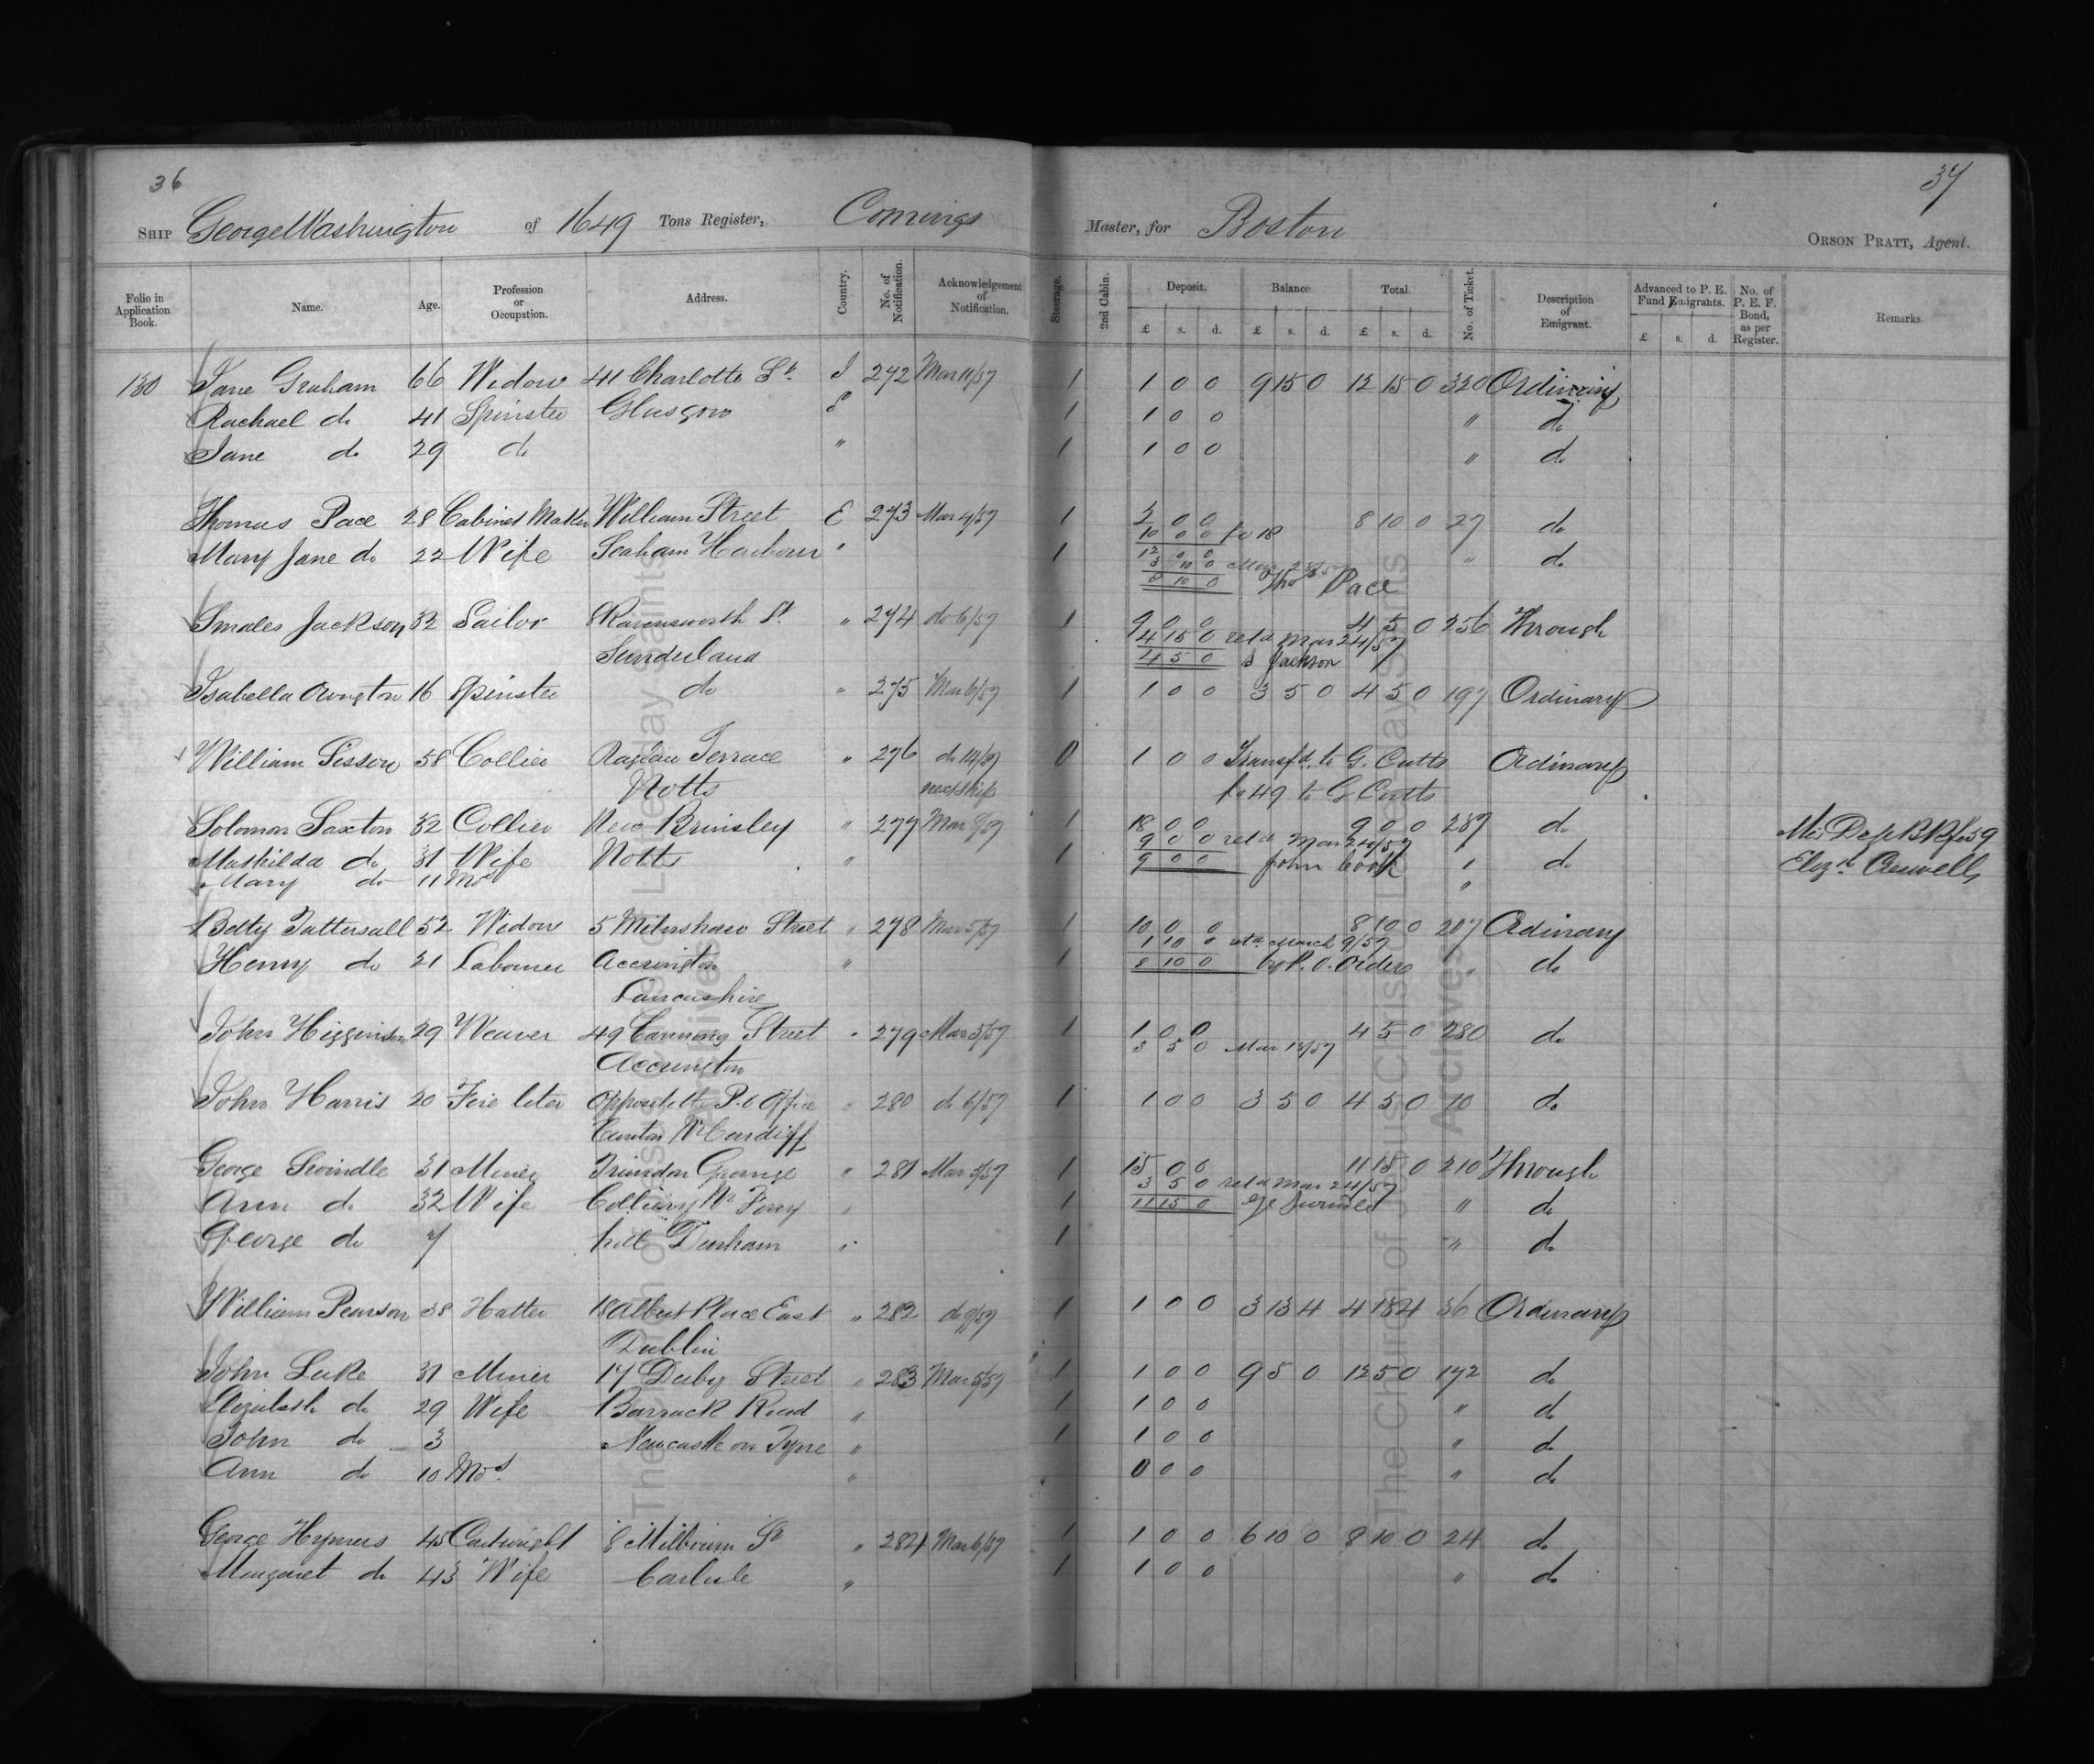 36
37
SHIP George Washington of 1649 Tons Register, Comings Master, for Boston ORSON PRATT, Agent.
Folio in Application Book. Name. Age. Profession or Occupation. Address. Country. No. of Notification. Acknowledgement of Notification. Steerage. 2nd Cabin. Deposit. £ s. d. Balance £ s. d. Total. £ s. d. No. of Ticket. Description of Emigrant. Advanced to P. E. Fund Emigrants. £ s. d. No. of P. E. F. Bond, as per Register. Remarks
130 Jane Graham 66 Widow 41 Charlotte St. I 272 Mar 11/57 1 1 0 0 9 15 0 12 15 0 320 Ordinary
Rachael do 41 Spinster Glasgow S 1 1 0 0 " do
Jane do 29 do " 1 1 0 0 " do
Thomas Pace 28 Cabinet Maker William Street E 273 Mar 4/57 1 2 0 0 8 10 0 27 do
10 0 0 fo 18
Mary Jane do 22 Wife Seaham Harbour " 1 12 0 0 " do
3 10 0
8 10 0 Thos Pace
Smales Jackson 32 Sailor Ravensworth St. " 274 do 6/57 1 9 0 0 4 5 0 256 Through
4 15 0 retd Mar 24/57
Sunderland 4 5 0 S Jackson
Isabella Ovington 16 Spinster do " 275 Mar 6/57 1 1 0 0 3 5 0 4 5 0 197 Ordinary
William Sisson 58 Collier Raglan Terrace " 276 do 14/57 0 1 0 0 Transfd. to G. Cutts Ordinary
Notts next ship fo 49 to G Cutts
Solomon Saxton 32 Collier New Brinsley " 277 Mar 9/57 1 18 0 0 9 0 0 287 do
9 0 0 retd Mar 24/57
Mathilda do 31 Wife Notts " 1 9 0 0 John Cook " do Elizth Creswell
Mary do 11 Mos "
Betty Tattersall 52 Widow 5 Milnshaw Street " 278 Mar 5/57 1 10 0 0 8 10 0 207 Ordinary
1 10 0 retd March 9/57
Henry do 21 Labourer Accrington " 1 8 10 0 by P. O. Orders " do
Lancashire
John Higginson 29 Weaver 49 Canning Street " 279 Mar 3/57 1 1 0 0 4 5 0 280 do
3 5 0 Mar 13/57
Accrington
John Harris 20 opposite the P. O Office " 280 do 6/57 1 1 0 0 3 5 0 4 5 0 10 do
Canton Nr Cardiff
George Swindle 31 Miner Trimdon Grange " 281 Mar 5/57 1 15 0 0 11 15 0 210 Through
3 5 0 retd Mar 24/57
Ann do 32 Wife Colliery Nr Ferry " 1 11 15 0 Ge Swindel " do
George do 7 hill Durham " 1 " do
William Pearson 38 Hatter 18 Albert Place East " 282 do 9/57 1 1 0 0 3 13 4 4 13 4 36 Ordinary
Dublin
John Luke 31 Miner 17 Derby Street " 283 Mar 5/57 1 1 0 0 9 5 0 12 5 0 172 do
Elizabeth do 29 Wife Barrack Road " 1 1 0 0 " do
John do 3 Newcastle on Tyne " 1 1 0 0 " do
Ann do 10 Mos. " 0 0 0 " do
George Hymers 45 Cartwright 8 Milbourn St " 284 Mar 6/57 1 1 0 0 6 10 0 8 10 0 24 do
Margaret do 43 Wife Carlisle " 1 1 0 0 " do